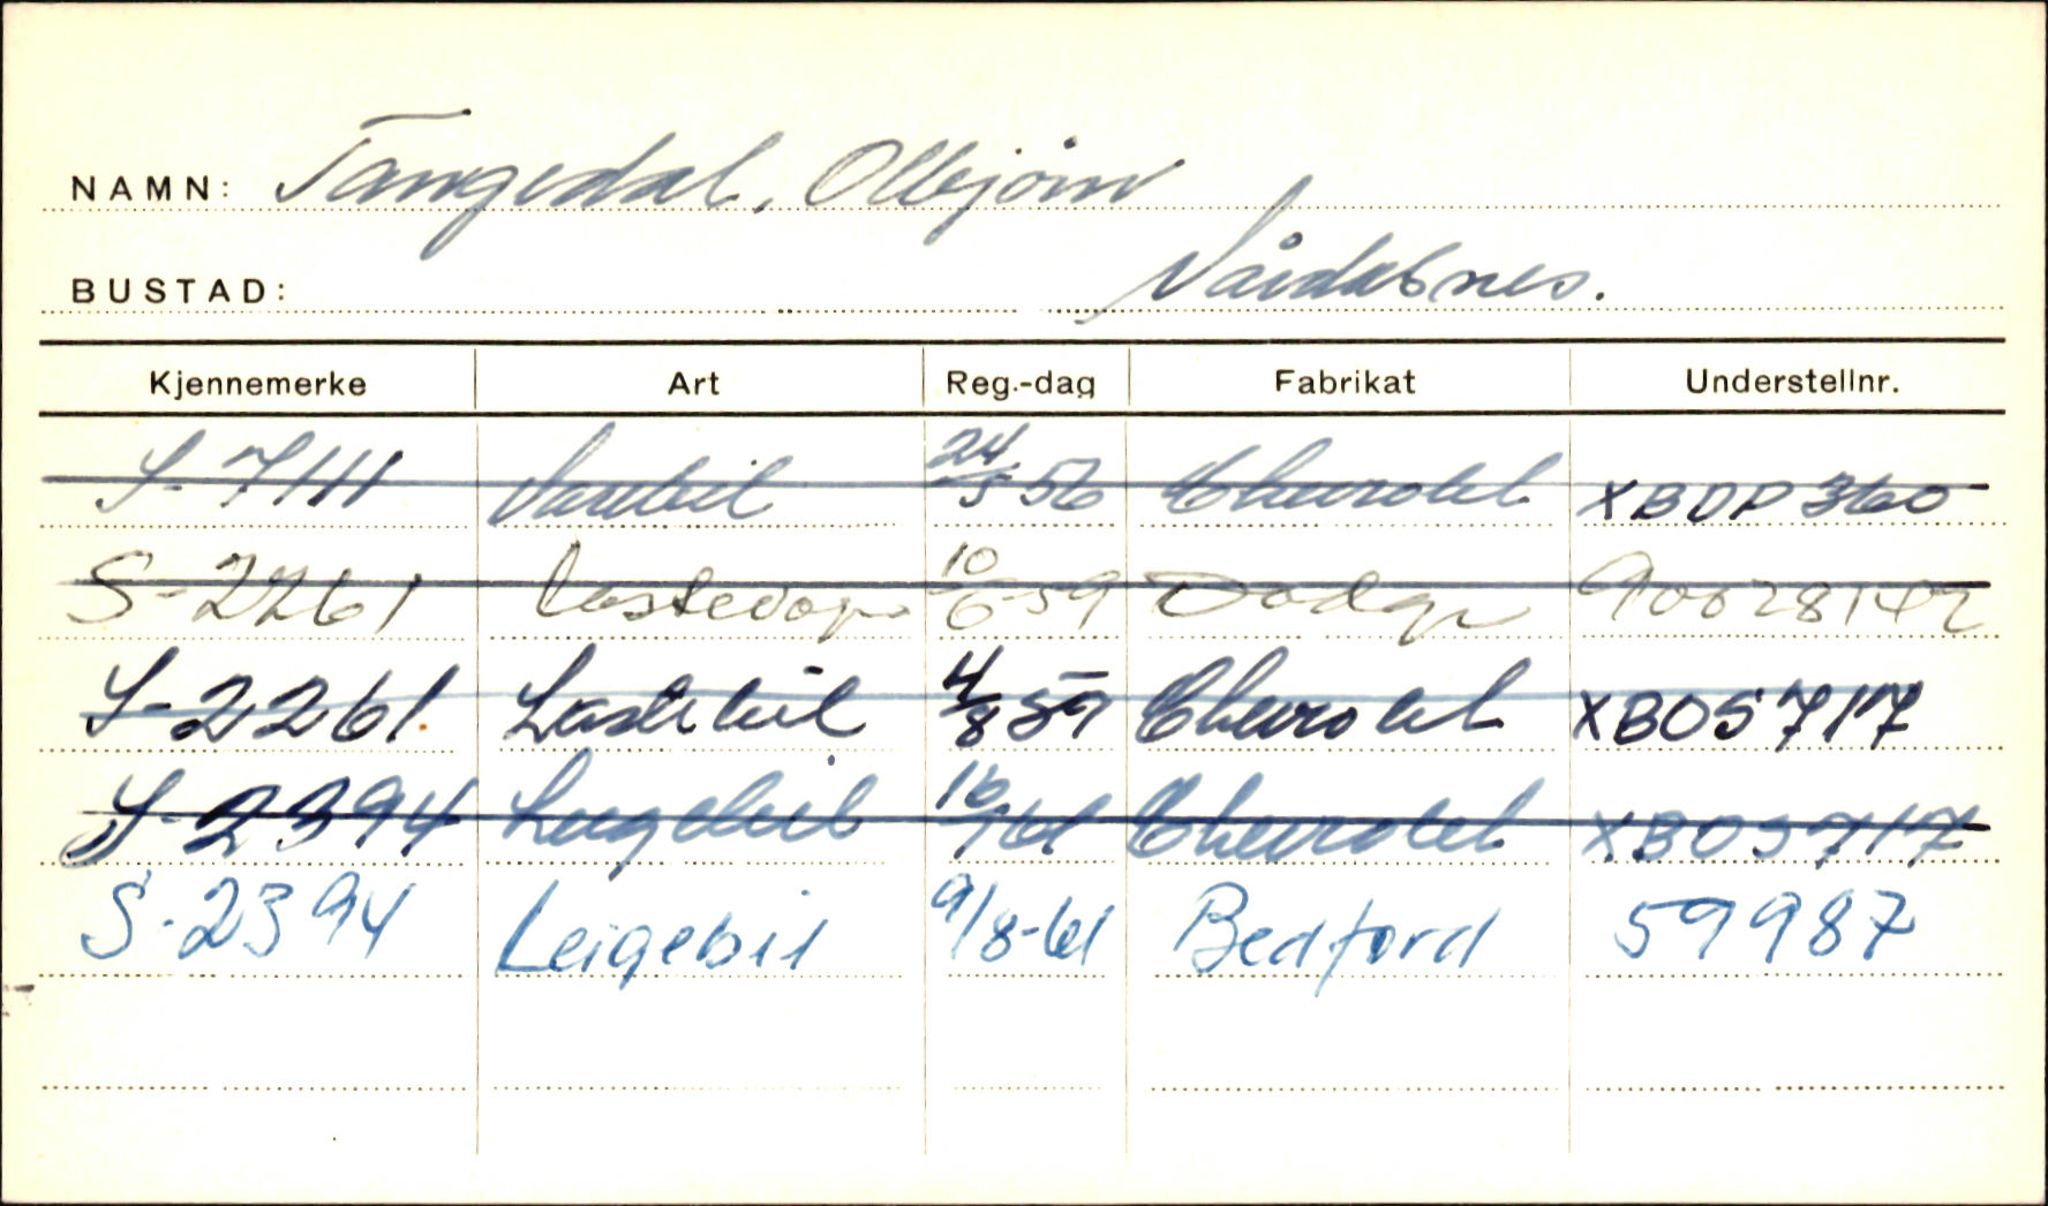 NAMN: Tangedal, Olbjørn
BUSTAD: Vårdalsnes.
Kjennemerke Art Reg.-dag Fabrikat Understellnr.
S-7111 Varebil 24/5 56 Chevrolet XBDP360
S-2261 Lastevogn 10/6-59 Dodge 90028142
S-2261. Lastebil 4/8 59 Chevrolet XBO5717
S-2394 Leigebil 16/1 61 Chevrolet XBO5717
S-2394 Leigebil 9/8-61 Bedford 59987